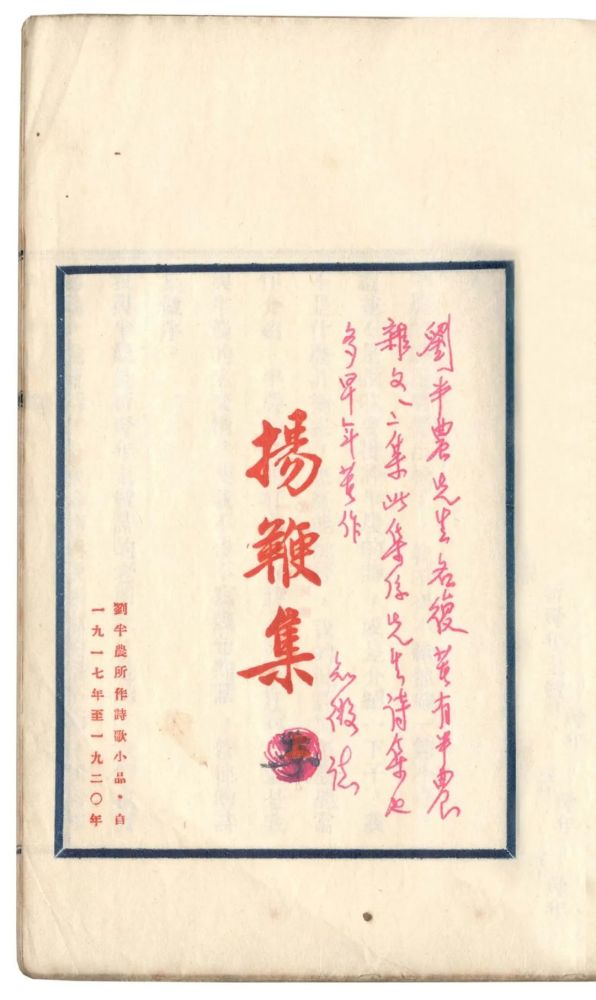 劉半農先生名復著有半農
雜文二集此集係先生詩集也
多早年著作
誌
揚鞭集
上
劉半農所作詩歌小品·自
一九一七年至一九二〇年